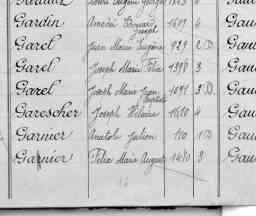 Gardin Amédée Edouard Joseph 1689 4 Gau
Garel Jean Marie Eugène 929 2 D Gau
Garel Joseph Marie Félix 1398 3 Gau
Garel Joseph Marie Jean Baptiste 1091 3 D Gau
Garescher Joseph Hilaire 1620 4 Gau
Garnier Anatole Julien 110 1 D Gau
Garnier Félix Marie Auguste 1480 3 Gau